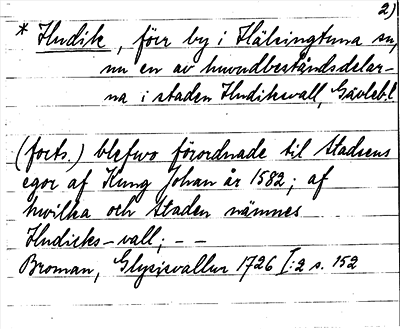 2)
* Hudik, förr by i Hälsingtuna sn,
nu en av huvudbeståndsdelar-
na i staden Hudiksvall, Gävlebl.
(forts.) blefwo förordnade til Stadsens
egor af Kung Johan år 1582; af
hwilka och Staden nämnes
Hudicks-vall; - -
Broman, Glysisvallur 1726 I:2 s. 152